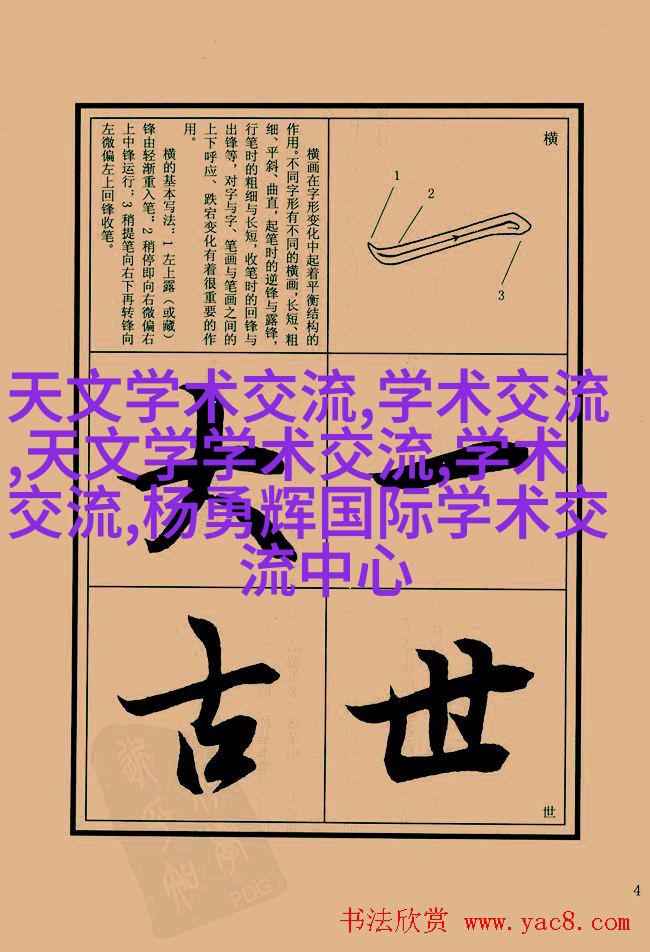 横
1
2
3
横画在字形变化中起着平衡结构的
作用。不同字形有不同的横画，长短、粗
细、平斜、曲直，起笔时的逆锋与露锋，
行笔时的粗细与长短，收笔时的回锋与
出锋等，对字与字、笔画与笔画之间的
上下呼应、跌宕变化有着很重要的作
用。
横的基本写法：1 左上露（或藏）
锋由轻渐重入笔；2 稍停即向右微偏右
上中锋运行；3 稍提笔向右下再转锋向
左微偏左上回锋收笔。
天文学术交流,学术交流
,天文学学术交流,学术
交流,杨勇辉国际学术交
流中心
一
大
世
古
世
PDG
4
书法欣赏 www.yac8.com